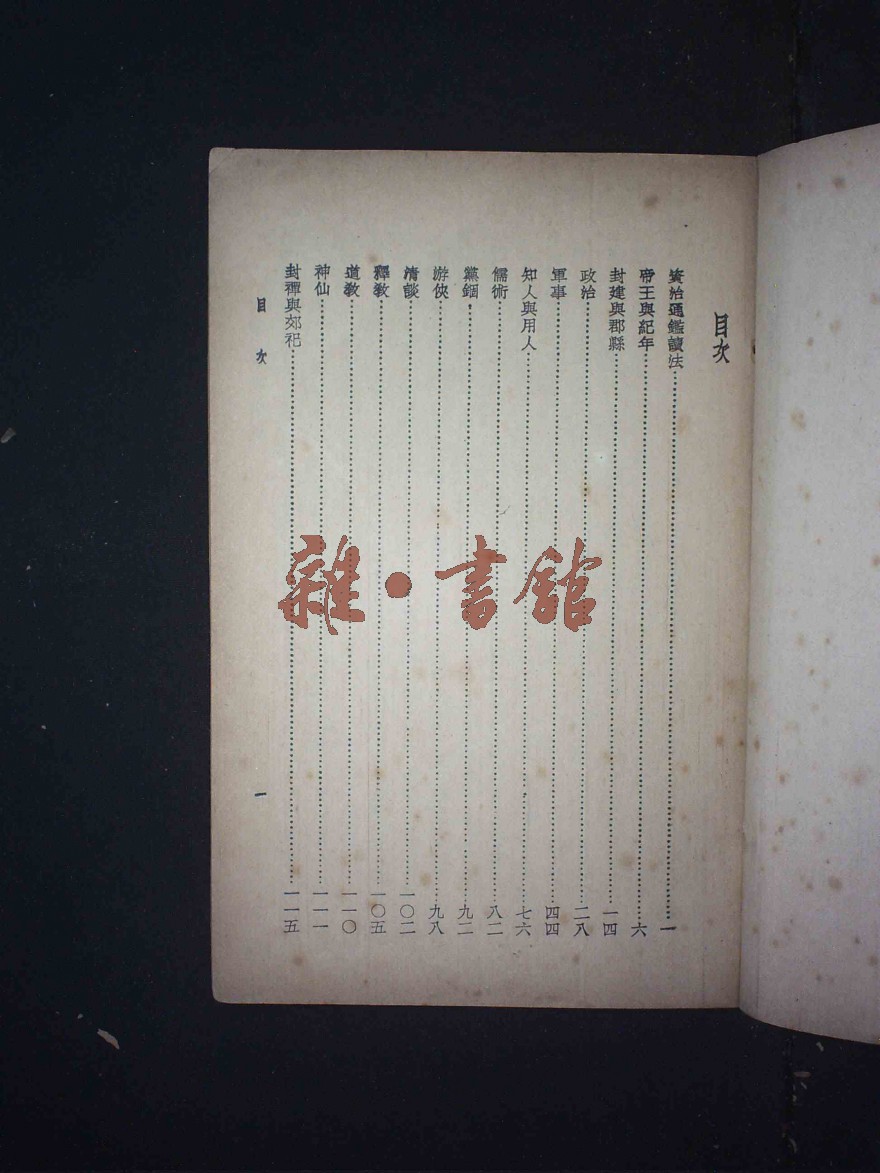 目次
資治通鑑讀法……一
帝王與紀年……六
封建與郡縣……一四
政治……二八
軍事……四四
知人與用人……七六
儒術……八二
黨錮……九二
游俠……九八
清談……一〇二
釋敎……一〇五
道敎……一一〇
神仙……一一一
封禪與郊祀……一一五
目次
一
雜·書館